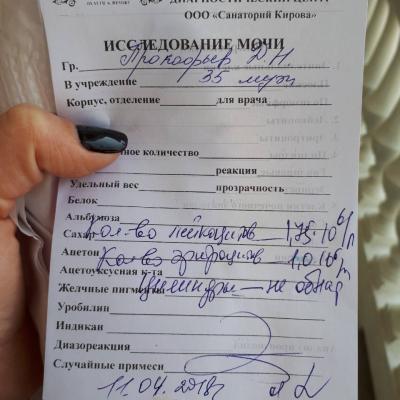 HEALTH & RESORT
ДИАГНОСТИЧЕСКИЙ ЦЕНТР
ООО «Санаторий Кирова»
ИССЛЕДОВАНИЕ МОЧИ
Гр. Прокофьев Д.Н.
В учреждение 35
Корпус, отделение для врача
ное количество
реакция
Удельный вес прозрачность
Белок
Альбумоза
Сахар Кол-во лейкоцитов 1,75·10⁶/л
Ацетон Кол-во эритроцитов 1,0·10⁶/л
Ацетоуксусная к-та
Желчные пигменты Цилиндры – не обнар
Уробилин
Индикан
Диазореакция
Случайные примеси
11.04.2018г